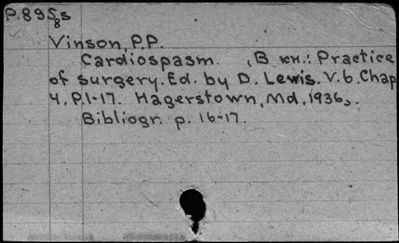 P.895s8
Vinson, P.P.
Cardiospasm. , В кн.: Practice
of surgery. Ed. by D. Lewis. V.6. Chap
4, P.1-17. Hagerstown, Md, 1936,.
Bibliogr. p. 16-17.